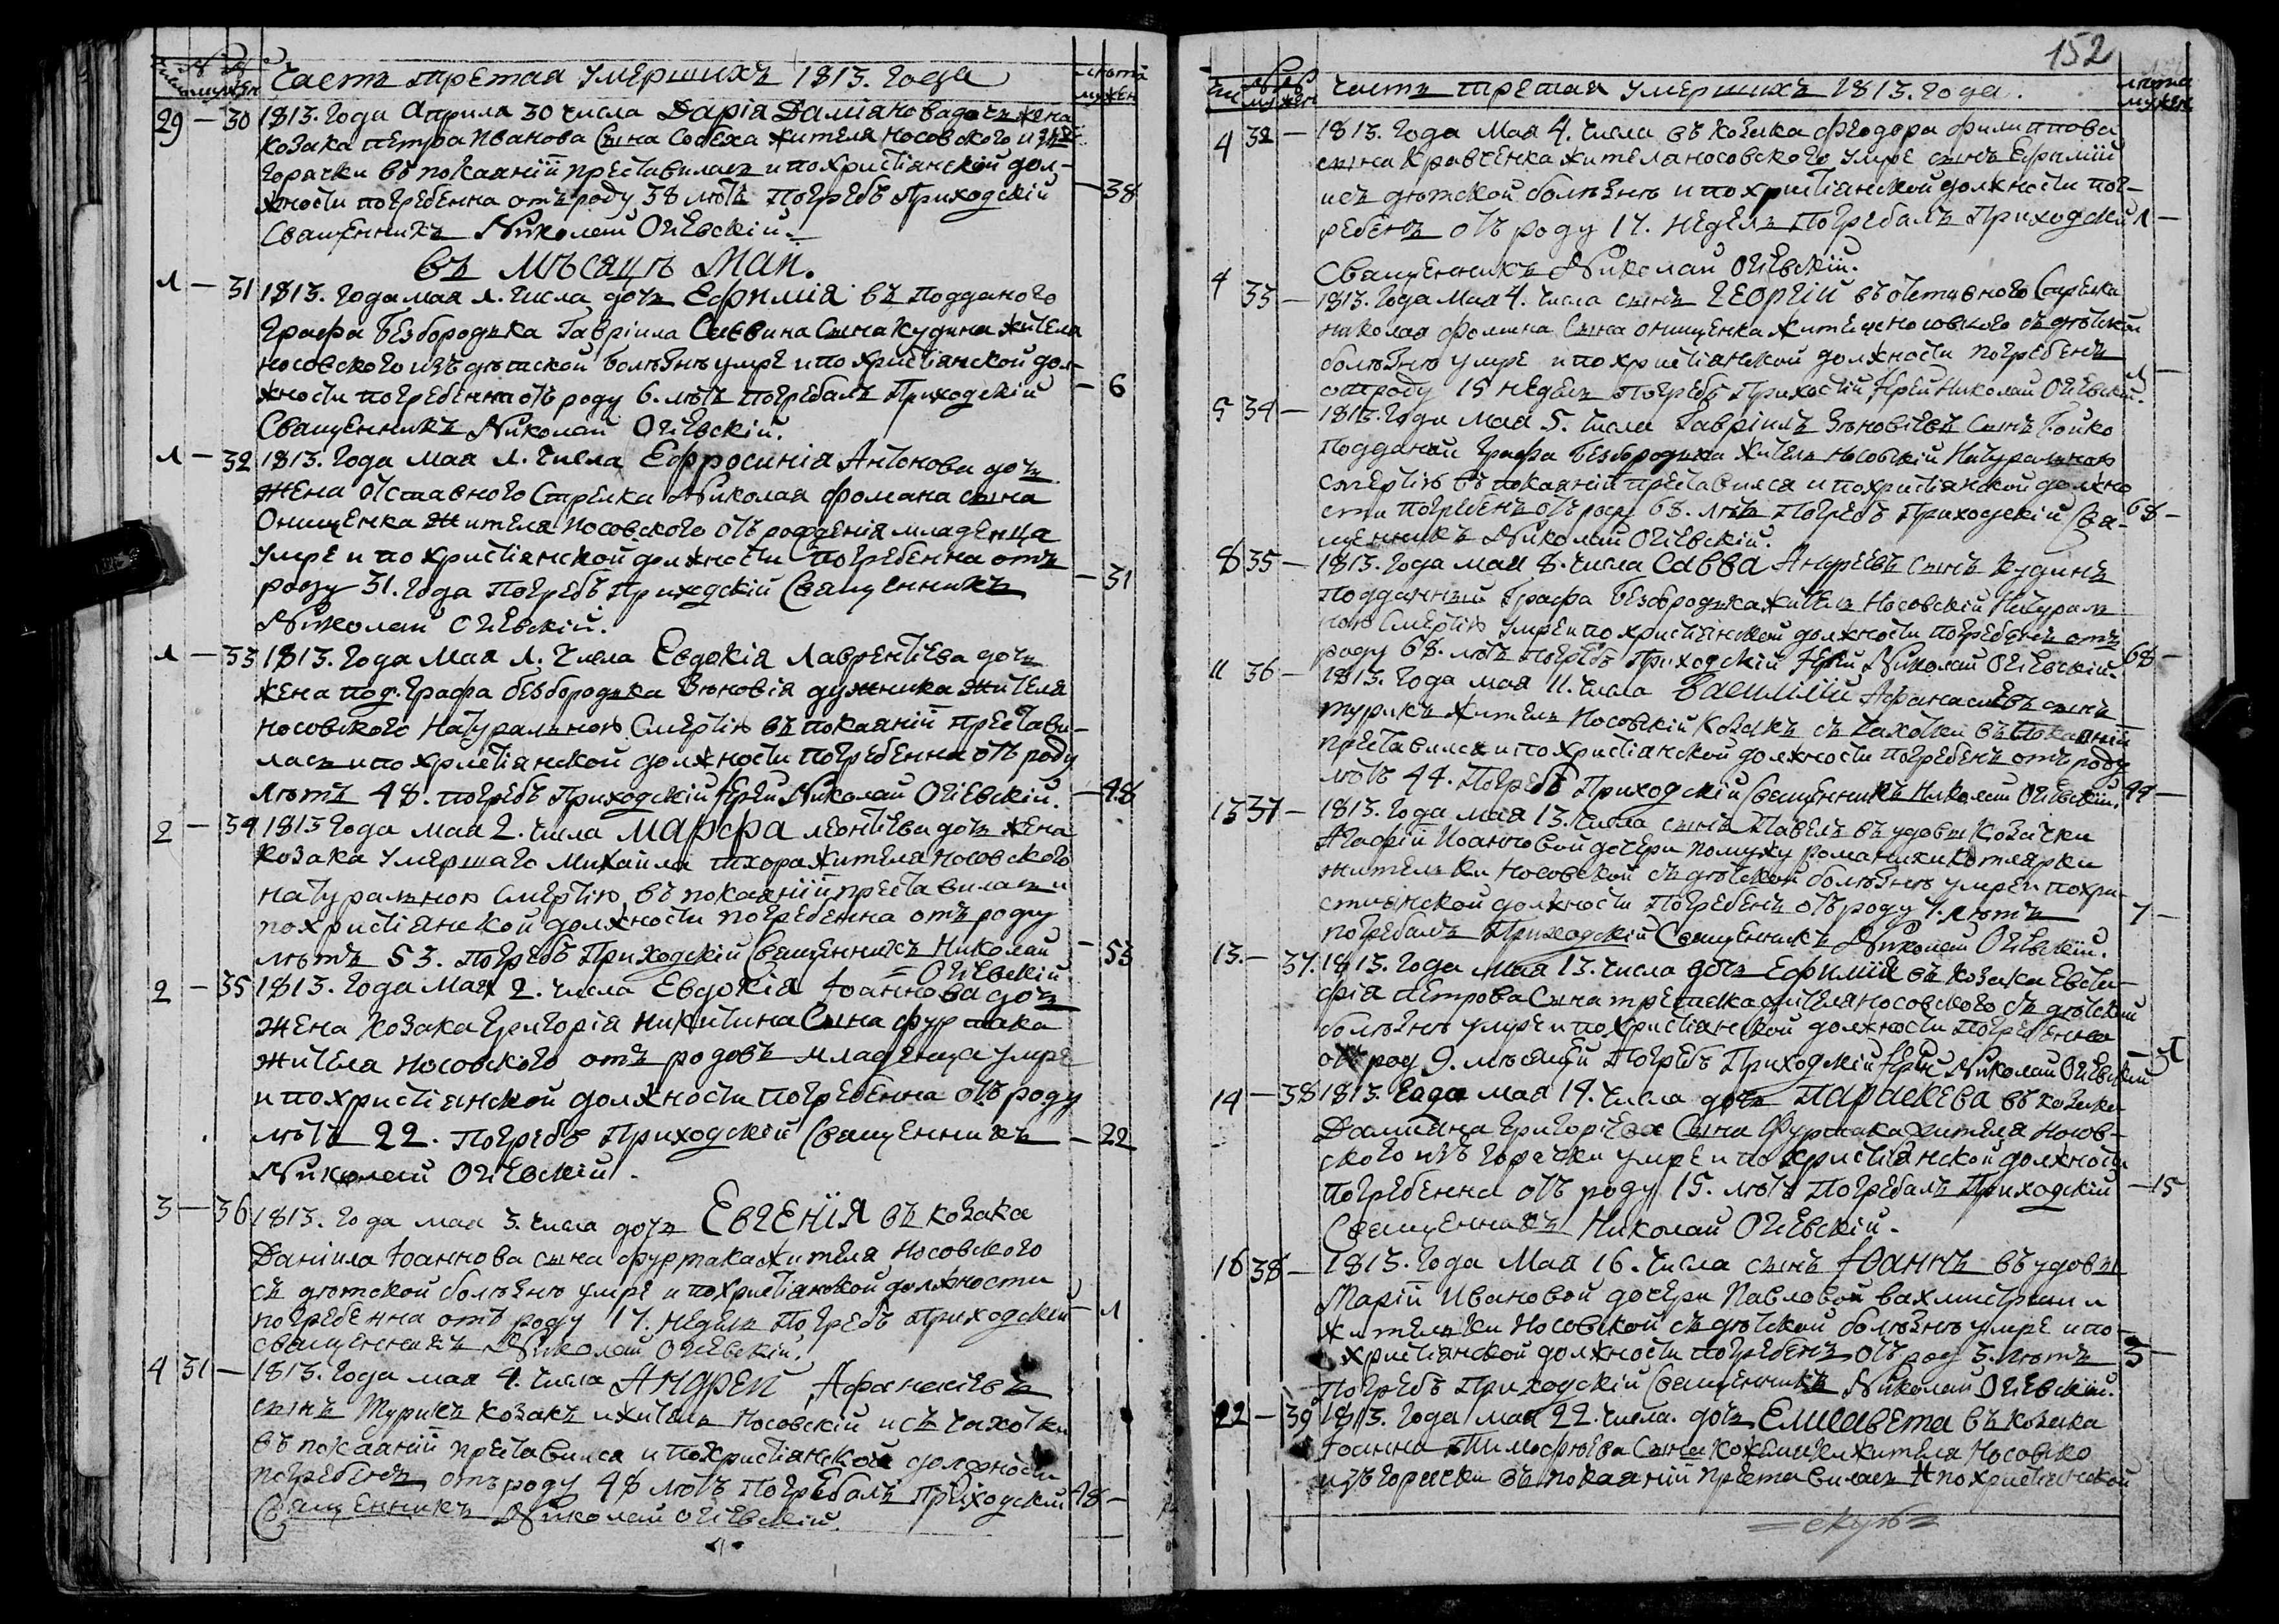 Часть третая умершихъ 1813. года
лѣта
мужен
29 — 30 1813. года Априла 30 числа Дарія Даміанова дочь жена
козака Петра Иванова сына жителя носовского изъ
горячки въ покаяніи преставилась и по христіянской дол-
жности погребенна отъ роду 38 лѣтъ погребъ Приходскій — 38
Священникъ Николай Огіевскій.
въ мѣсяцѣ Маи.
1 — 31 1813. года мая 1. числа дочь Ефимія въ подданого
графа Безбородька Гавріила Саввина сына Кудина жителя
носовского изъ дѣтской болѣзнѣ умре и по христіянской дол-
жности погребенна отъ роду 6. лѣтъ погребалъ Приходскій — 6
Священникъ Николай Огіевскій.
1 — 32 1813. года мая 1. числа Ефросинія Антонова дочь
жена отставного стрелка Николая Фомина сына
Онищенка жителя носовского отъ рожденія младенца
умре и по христіянской должности погребенна отъ
роду 31. года погребъ Приходскій Священникъ — 31
Николай Огіевскій.
1 — 33 1813. года мая 1. числа Евдокія Лаврентіева дочь
жена под. графа безбородька Зѣновія дужника жителя
носовского натуральною смертію въ покаяніи престави-
лась и по христіянской должности погребенна отъ роду
лѣтъ 48. погребъ Приходскій Іерей Николай Огіевскій. — 48
2 — 34 1813 года мая 2. числа Марфа леонтіева дочь жена
козака умершаго Михайла тхора жителя носовского
натуральною смертію въ покаяніи преставилась и
по христіянской должности погребенна отъ роду
лѣтъ 53. погребъ Приходскій Священникъ Николай — 53
= Огіевскій.
2 — 35 1813. года мая 2. числа Евдокія Іоаннова дочь
жена козака Григорія Никитина сына фурмака
жителя носовского отъ родовъ младенца умре
и по христіянской должности погребенна отъ роду
лѣтъ 22. погребъ Приходскій Священникъ — 22
Николай Огіевскій.
3 — 36 1813. года мая 3. числа дочь Евгенія въ козака
Даніила Іоаннова сына фурмака жителя носовского
съ дѣтской болѣзнѣ умре и по христіянской должности
погребенна отъ роду 17. недель погребъ Приходскій — 1
священникъ Николай Огіевскій.
4 31 — 1813. года мая 4. числа Андрей Афанасіевъ
сынъ Турикъ козакъ и житель Носовскій исъ чахотки
въ покаяніи преставился и по христіянской должности
погребенъ отъ роду 48 лѣтъ погребалъ Приходскій 48 —
Священникъ Николай Огіевскій.
152
Часть третая умершихъ 1813. года.
лѣта
мужен
4 32 — 1813. года мая 4. числа въ козака Феодора филиппова
сына Кравченка жителя носовского умре сынъ Ефимій
изъ дѣтской болѣзнѣ и по христіянской должности пог-
ребенъ отъ роду 17. недель погребалъ Приходскій 1 —
Священникъ Николай Огіевскій.
4 33 — 1813. года мая 4. числа сынъ Георгій въ отставного стрелка
николая фомина сына онищенка жителя носовского съ дѣтской
болѣзнѣ умре и по христіянской должности погребенъ
отъ роду 15 недель погребъ Приходскій Іерей Николай Огіевскій. 1 —
5 34 — 1813. года мая 5. числа Гавріилъ Зѣновіевъ сынъ Бойко
подданый графа Безбородька житель носовскій натуральною
смертію въ покаяніи преставился и по христіянской должно
сти погребенъ отъ роду 68. лѣтъ погребъ Приходскій Свя- 68 —
щенникъ Николай Огіевскій.
8 35 — 1813. года мая 8. числа Савва Андреевъ сынъ Кудинъ
подданный графа Безбродька житель Носовскій натураль
ною смертію умре и по христіянской должности погребенъ отъ
роду 68. лѣтъ погребъ Приходскій Іерей Николай Огіевскій. 68 —
11 36 — 1813. года мая 11. числа Василій Афанасіевъ сынъ
турикъ житель Носовскій козакъ съ чахотки въ покаяніи
преставился и по христіянской должности погребенъ отъ роду
лѣтъ 44. погребъ Приходскій Священникъ Николай Огіевскій. 44 —
13 37 — 1813. года мая 13. числа сынъ Павелъ въ удовы козачки
Агафіи Иоанновой дочери по мужу
жительки носовской съ дѣтской болѣзнѣ умре и по хри-
стіянской должности погребенъ отъ роду 7. лѣтъ 7 —
погребалъ Приходскій Священникъ Николай Огіевскій.
13. — 37. 1813. года мая 13. числа дочь Ефимія въ козака Евста-
фія Петрова сына жителя носовского съ дѣтской
болѣзнѣ умре и по христіянской должности погребенна
отъ роду 9. мѣсяцей погребъ Приходскій Іерей Николай Огіевскій — 1
14 — 38 1813. года мая 14. числа дочь Параскева въ козака
Даміяна Григоріева сына Фурмака жителя Носов-
ского изъ горячки умре и по христіянской должности
погребенна отъ роду 15. лѣтъ погребалъ Приходскій — 15
Священникъ Николай Огіевскій.
16 38 — 1813. года мая 16. числа сынъ Іоаннъ въ удовы
Маріи Ивановой дочери Павловой
жительки Носовской съ дѣтской болѣзнѣ умре и по-
христіянской должности погребенъ отъ роду 3. лѣтъ 3 —
погребъ Приходскій Священникъ Николай Огіевскій.
22 — 39 1813. года мая 22. числа. дочь Елисавета въ козака
Іоанна Тимофеева сына жителя Носовско
изъ горячки въ покаяніи преставилась и по христіянской